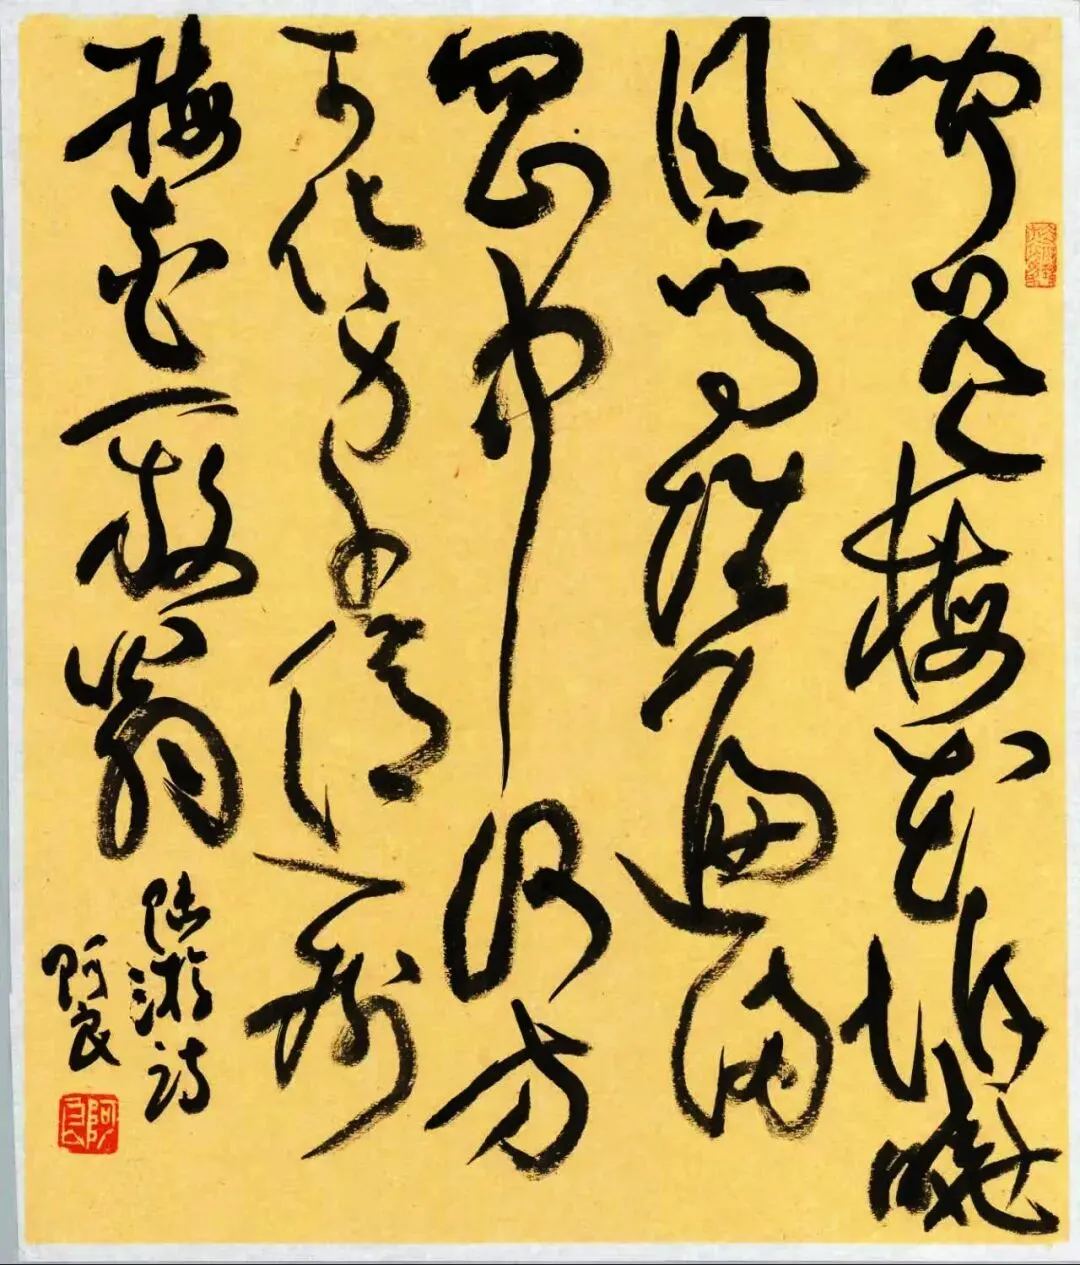 闻道梅花坼晓
风雪堆遍满
四山中何方
可化身千億一树
梅花一放翁
陆游诗
阿良
阿良